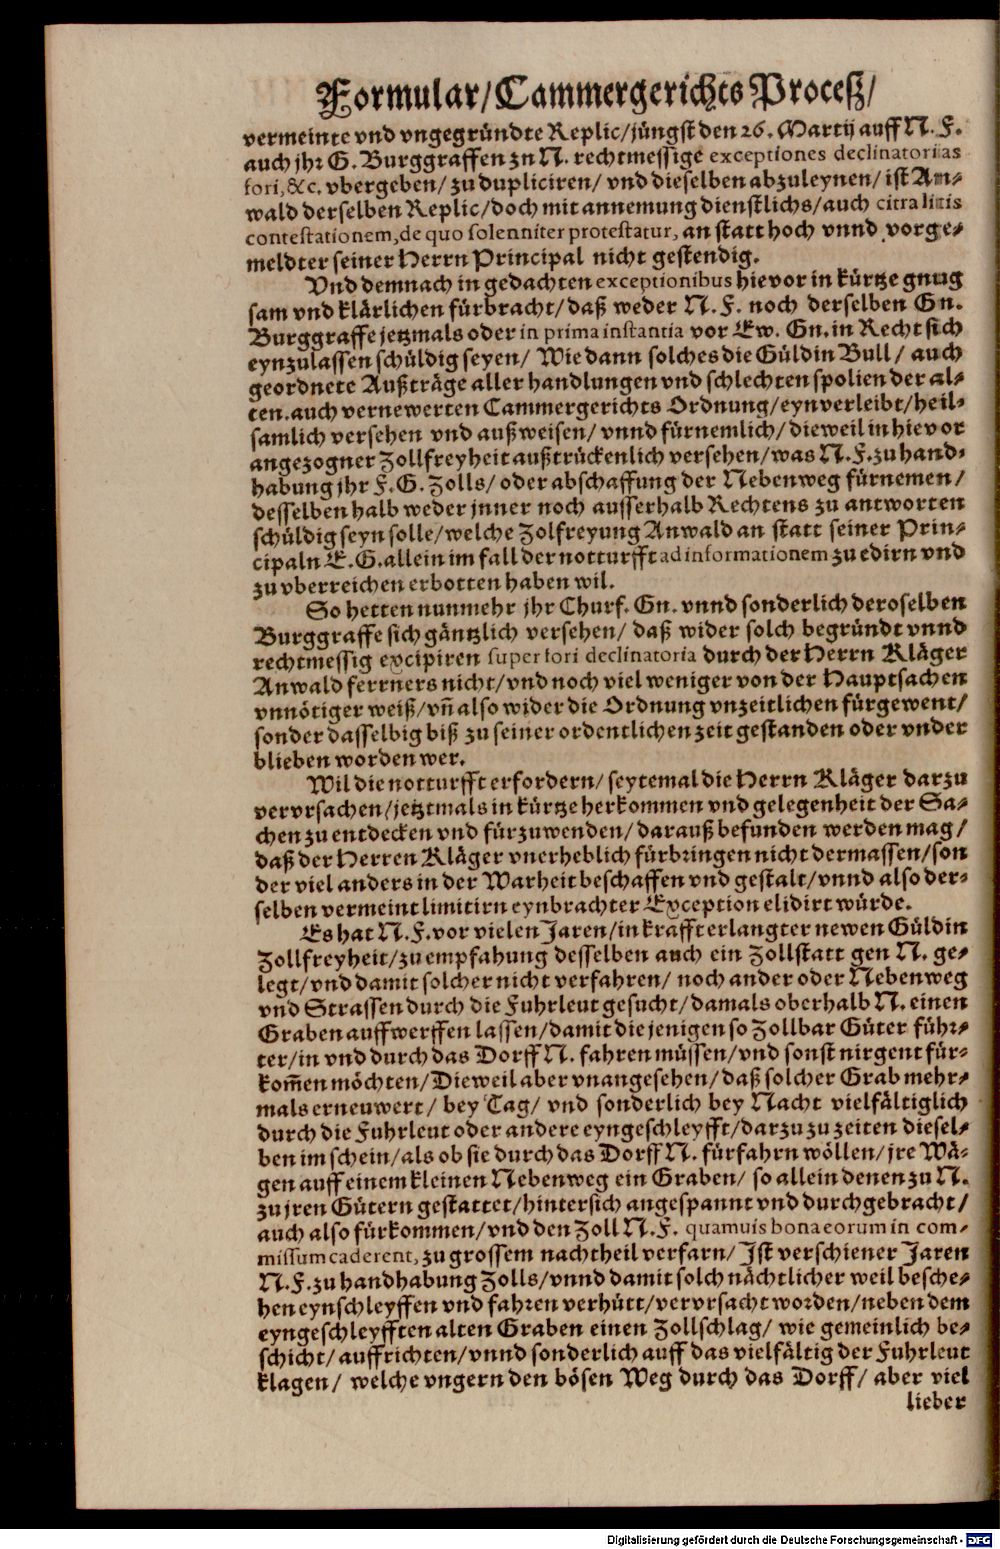 Formular/Cammergerichts Proceß/
vermeinte vnd vngegründte Replic/jüngst den 26. Martij auff N. F.
auch jhr G. Burggraffen zn N. rechtmessige exceptiones declinatorias
fori, &c. vbergeben/ zu dupliciren/ vnd dieselben abzuleynen/ ist An-
wald derselben Replic/doch mit annemung dienstlichs/auch citra litis
contestationem, de quo solenniter protestatur, an statt hoch vnnd vorge-
meldter seiner Herrn Principal nicht gestendig.
Vnd demnach in gedachten exceptionibus hievor in kürtze gnug
sam vnd klärlichen fürbracht/ daß weder N. F. noch derselben Gn.
Burggraffe jetzmals oder in prima instantia vor Ew. Gn. in Recht sich
eynzulassen schüldig seyen/ Wie dann solches die Güldin Bull/ auch
geordnete Außträge aller handlungen vnd schlechten spolien der al-
ten. auch vernewerten Cammergerichts Ordnung/eynverleibt/heil-
samlich versehen vnd außweisen/ vnnd fürnemlich/ dieweil in hievor
angezogner Zollfreyheit außtrückenlich versehen/was N. F. zu hand-
habung jhr F. G. Zolls/ oder abschaffung der Nebenweg fürnemen/
desselben halb weder jnner noch ausserhalb Rechtens zu antworten
schüldig seyn solle/welche Zolfreyung Anwald an statt seiner Prin-
cipaln E. G. allein im fall der notturfft ad informationem zu edirn vnd
zu vberreichen erbotten haben wil.
So hetten nunmehr jhr Churf. Gn. vnnd sonderlich deroselben
Burggraffe sich gäntzlich versehen/ daß wider solch begründt vnnd
rechtmessig excipiren super fori declinatoria durch der Herrn Kläger
Anwald ferrners nicht/vnd noch viel weniger von der Hauptsachen
vnnötiger weiß/vn̄ also wider die Ordnung vnzeitlichen fürgewent/
sonder dasselbig biß zu seiner ordentlichen zeit gestanden oder vnder
blieben worden wer.
Wil die notturfft erfordern/ seytemal die Herrn Kläger darzu
vervrsachen/jetztmals in kürtze herkommen vnd gelegenheit der Sa-
chen zu entdecken vnd fürzuwenden/ darauß befunden werden mag/
daß der Herren Kläger vnerheblich fürbringen nicht dermassen/son
der viel anders in der Warheit beschaffen vnd gestalt/vnnd also der-
selben vermeint limitirn eynbrachter Exception elidirt würde.
Es hat N. F. vor vielen Jaren/in krafft erlangter newen Güldin
Zollfreyheit/zu empfahung desselben auch ein Zollstatt gen N. ge-
legt/vnd damit solcher nicht verfahren/ noch ander oder Nebenweg
vnd Strassen durch die Fuhrleut gesucht/damals oberhalb N. einen
Graben auffwerffen lassen/damit die jenigen so Zollbar Güter führ-
ter/in vnd durch das Dorff N. fahren müssen/vnd sonst nirgent für-
kom̄en möchten/Dieweil aber vnangesehen/daß solcher Grab mehr-
mals erneuwert/ bey Tag/ vnd sonderlich bey Nacht vielfältiglich
durch die Fuhrleut oder andere eyngeschleyfft/darzu zu zeiten diesel-
ben im schein/als ob sie durch das Dorff N. fürfahrn wöllen/jre Wä-
gen auff einem kleinen Nebenweg ein Graben/ so allein denen zu N.
zu jren Gütern gestattet/hintersich angespannt vnd durchgebracht/
auch also fürkommen/vnd den Zoll N. F. quamuis bona eorum in com-
missum caderent, zu grossem nachtheil verfarn/ Ist verschiener Jaren
N. F. zu handhabung Zolls/vnnd damit solch nächtlicher weil besche-
hen eynschleyffen vnd fahren verhütt/vervrsacht worden/neben dem
eyngeschleyfften alten Graben einen Zollschlag/ wie gemeinlich be-
schicht/auffrichten/vnnd sonderlich auff das vielfältig der Fuhrleut
klagen/ welche vngern den bösen Weg durch das Dorff/ aber viel
lieber
Digitalisierung gefördert durch die Deutsche Forschungsgemeinschaft - DFG